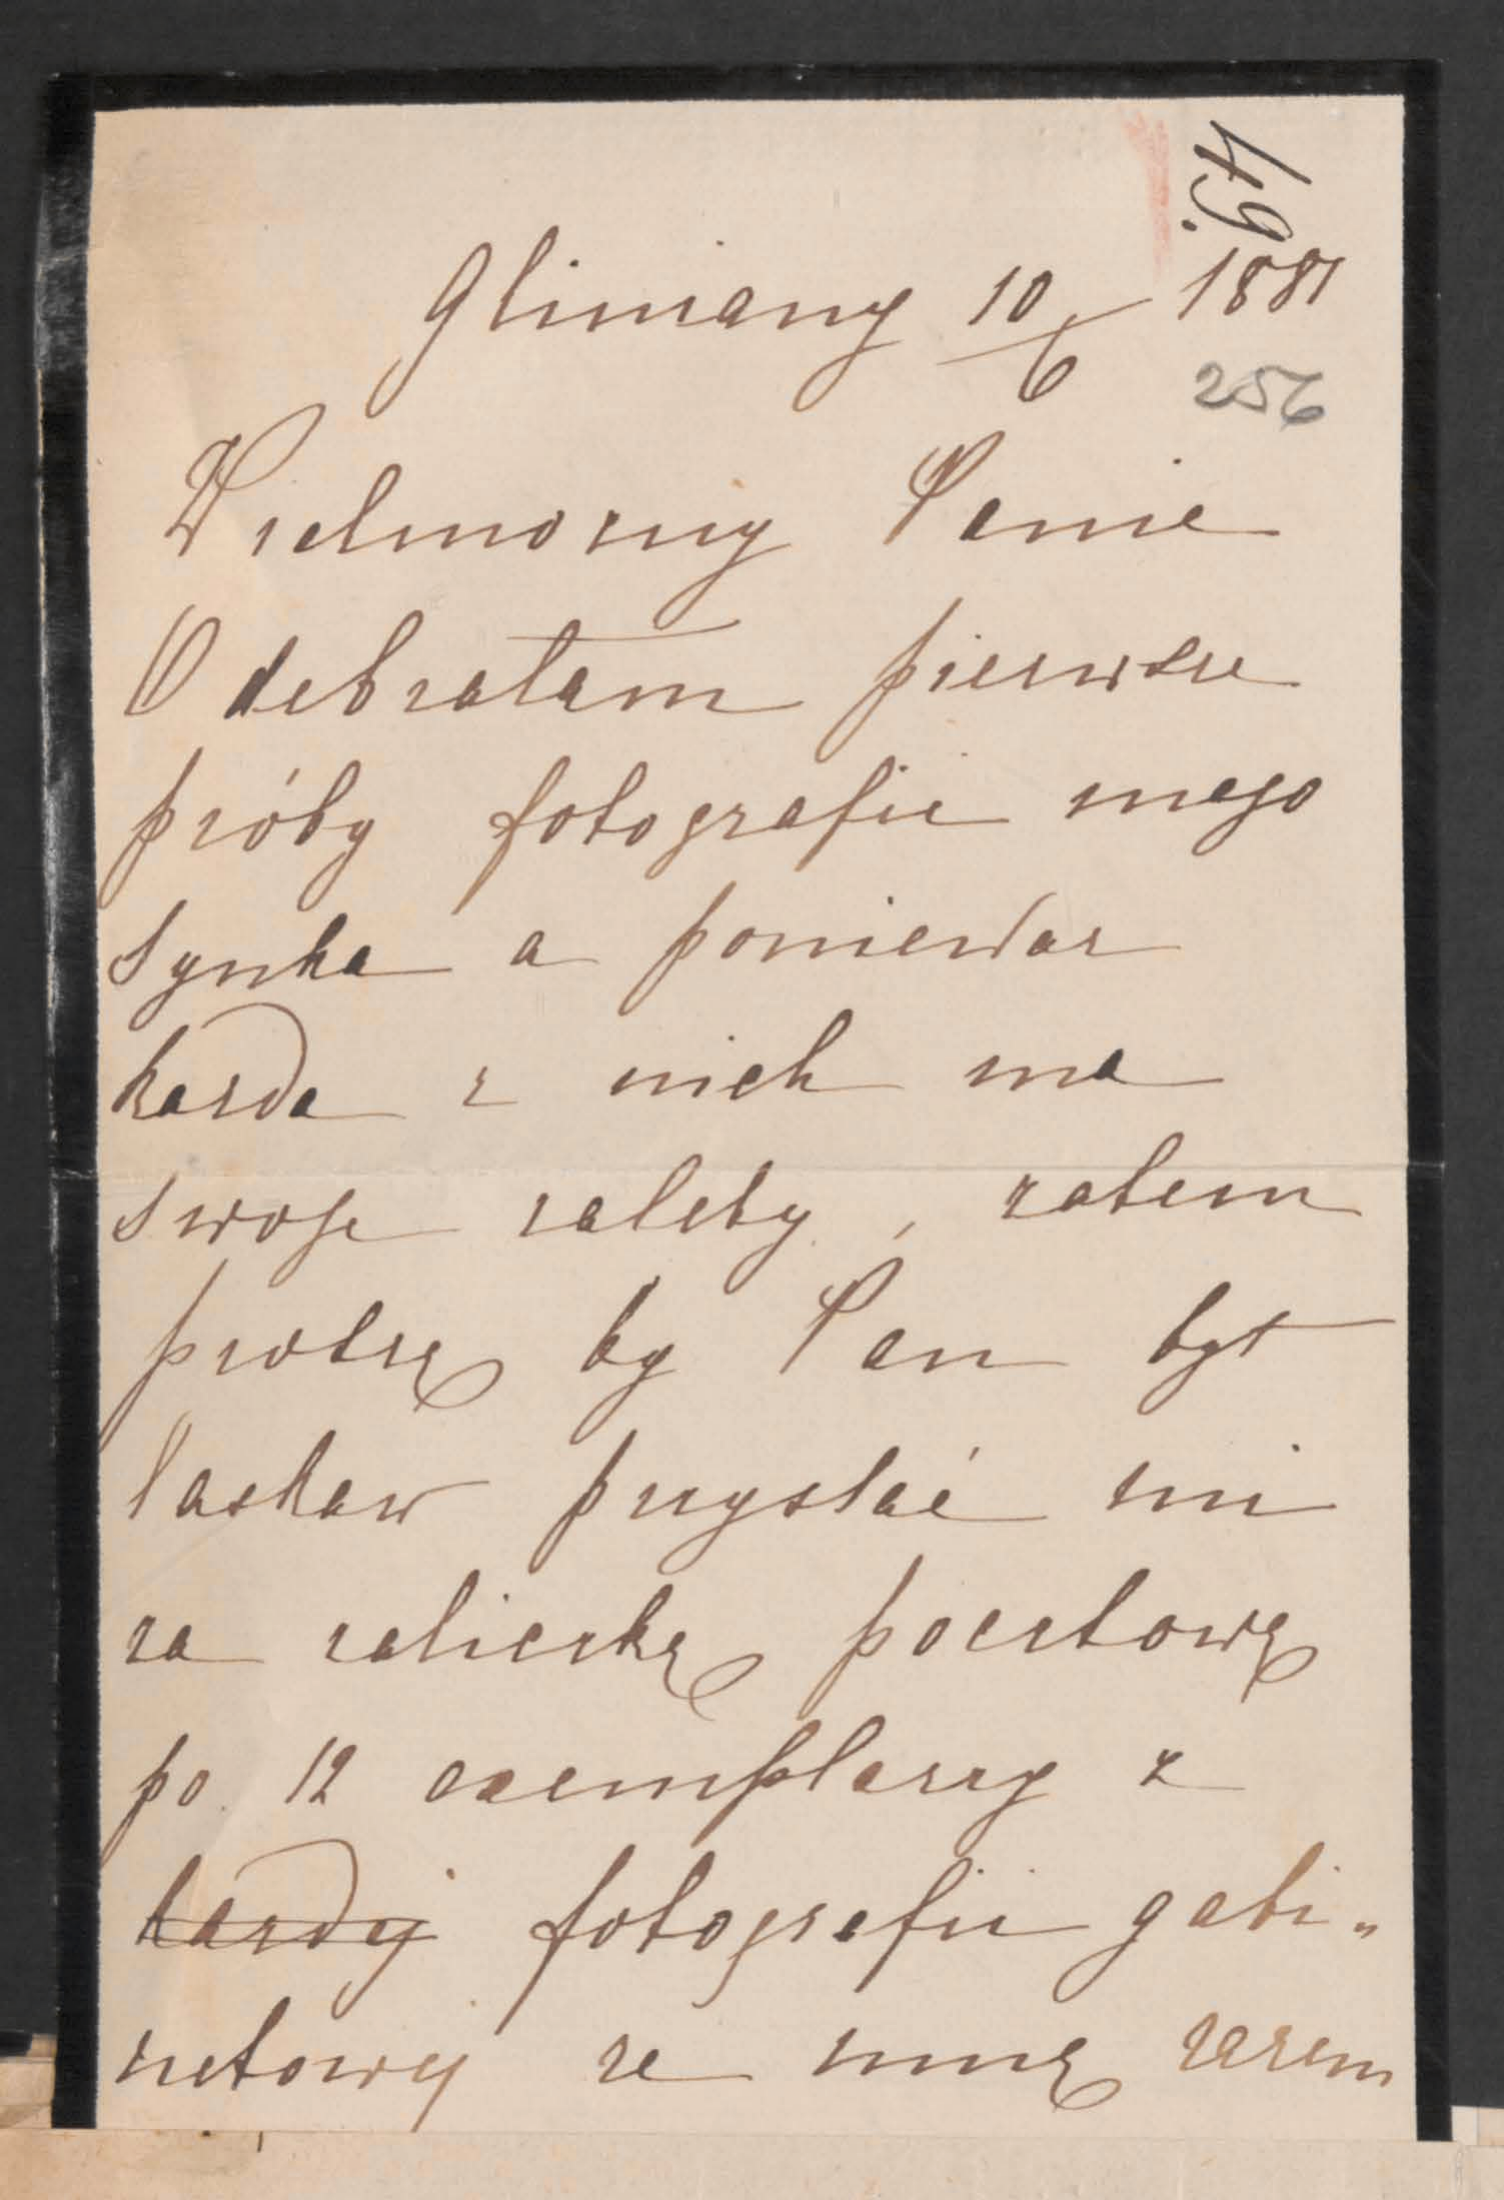 49.
Gliniany 10/6 1881
256
Wielmożny Panie
Odebrałam pierwsze
próby fotografii mego
synka a ponieważ
każda z nich ma
swoje zalety, zatem
proszę by Pan był
łaskaw przysłać mi
za zaliczką pocztową
po 12 exemplarzy z
każdej fotografii gabi„
netowej ze mną razem